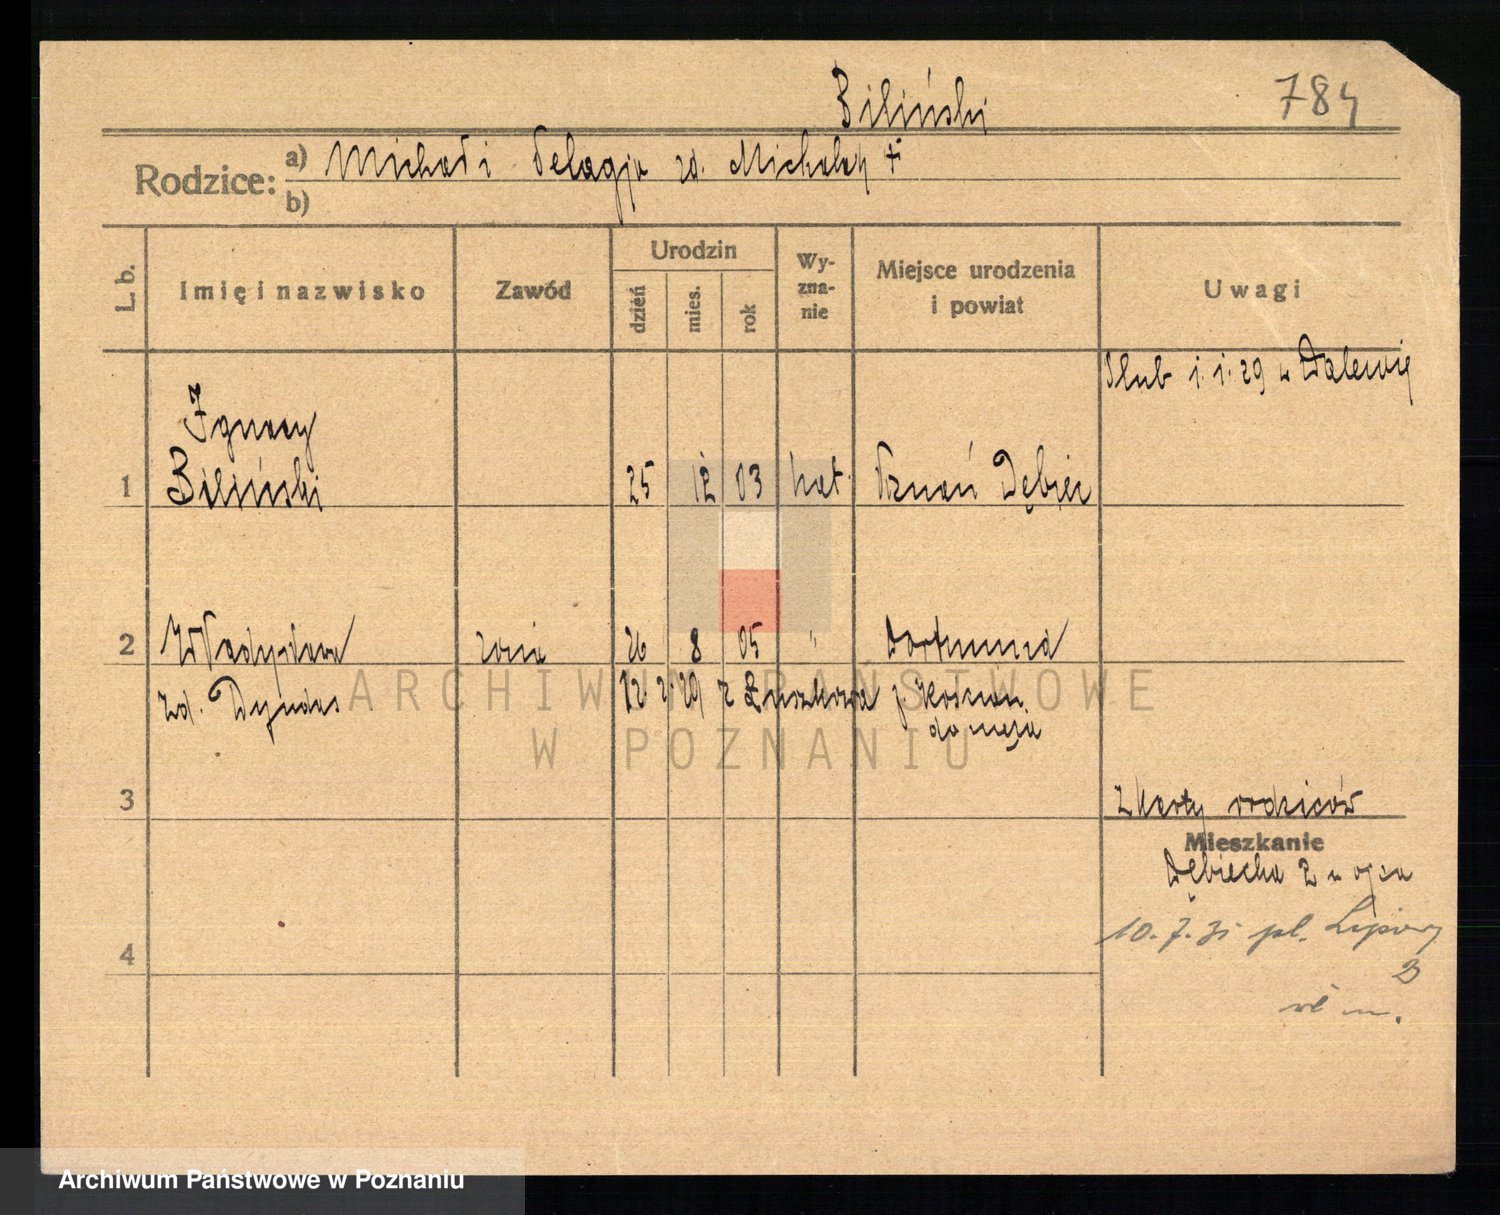 Biliński
784
Rodzice: a) Michał i Pelagja zd. Michalak +
b)
L. b. Imię i nazwisko Zawód Urodzin dzień mies. rok Wy-zna-nie Miejsce urodzenia i powiat Uwagi
Ślub 1. 1. 29 w
Ignacy
1 Biliński 25 12 03 kat. Poznań Dębiec
2 Władysława żona 26 8 05 " Dortmund
zd. Dyndas 12. 2. 29 z p. Kościan
do męża
ARCHIWUM PAŃSTWOWE
W POZNANIU
3 z karty rodziców
Mieszkanie
Dębiecka 2 u ojca
4 10. 7. 31 pl. Lipowy
3
Archiwum Państwowe w Poznaniu